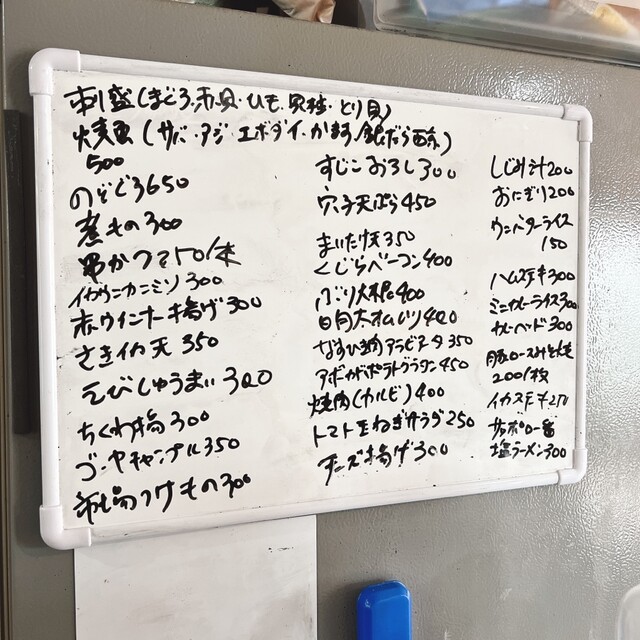 刺盛(まぐろ・赤貝・ひも・貝柱・とり貝)
焼魚(サバ・アジ・エボダイ・かます・銀だら西京)
500
のどぐろ650
煮もの300
串かつ2本150/本
イカウニカニミソ300
赤ウインナー揚げ300
さきイカ天 350
えびしゅうまい300
ちくわ揚300
ゴーヤチャンプル350
市場つけもの300
すじこおろし300
穴子天ぷら450
まいたけ天350
くじらベーコン400
ぶり大根400
明太オムレツ400
なすひき肉アラビアータ350
アボカドポテトグラタン450
焼肉(カルビ)400
トマト玉ねぎサラダ250
チーズ揚げ300
しじみ汁200
おにぎり200
ウニバターライス
150
ハムステーキ300
ミニカレーライス300
カレーヘッド300
豚ロースみそ焼
200/1枚
イカステーキ250
サッポロ一番
塩ラーメン300